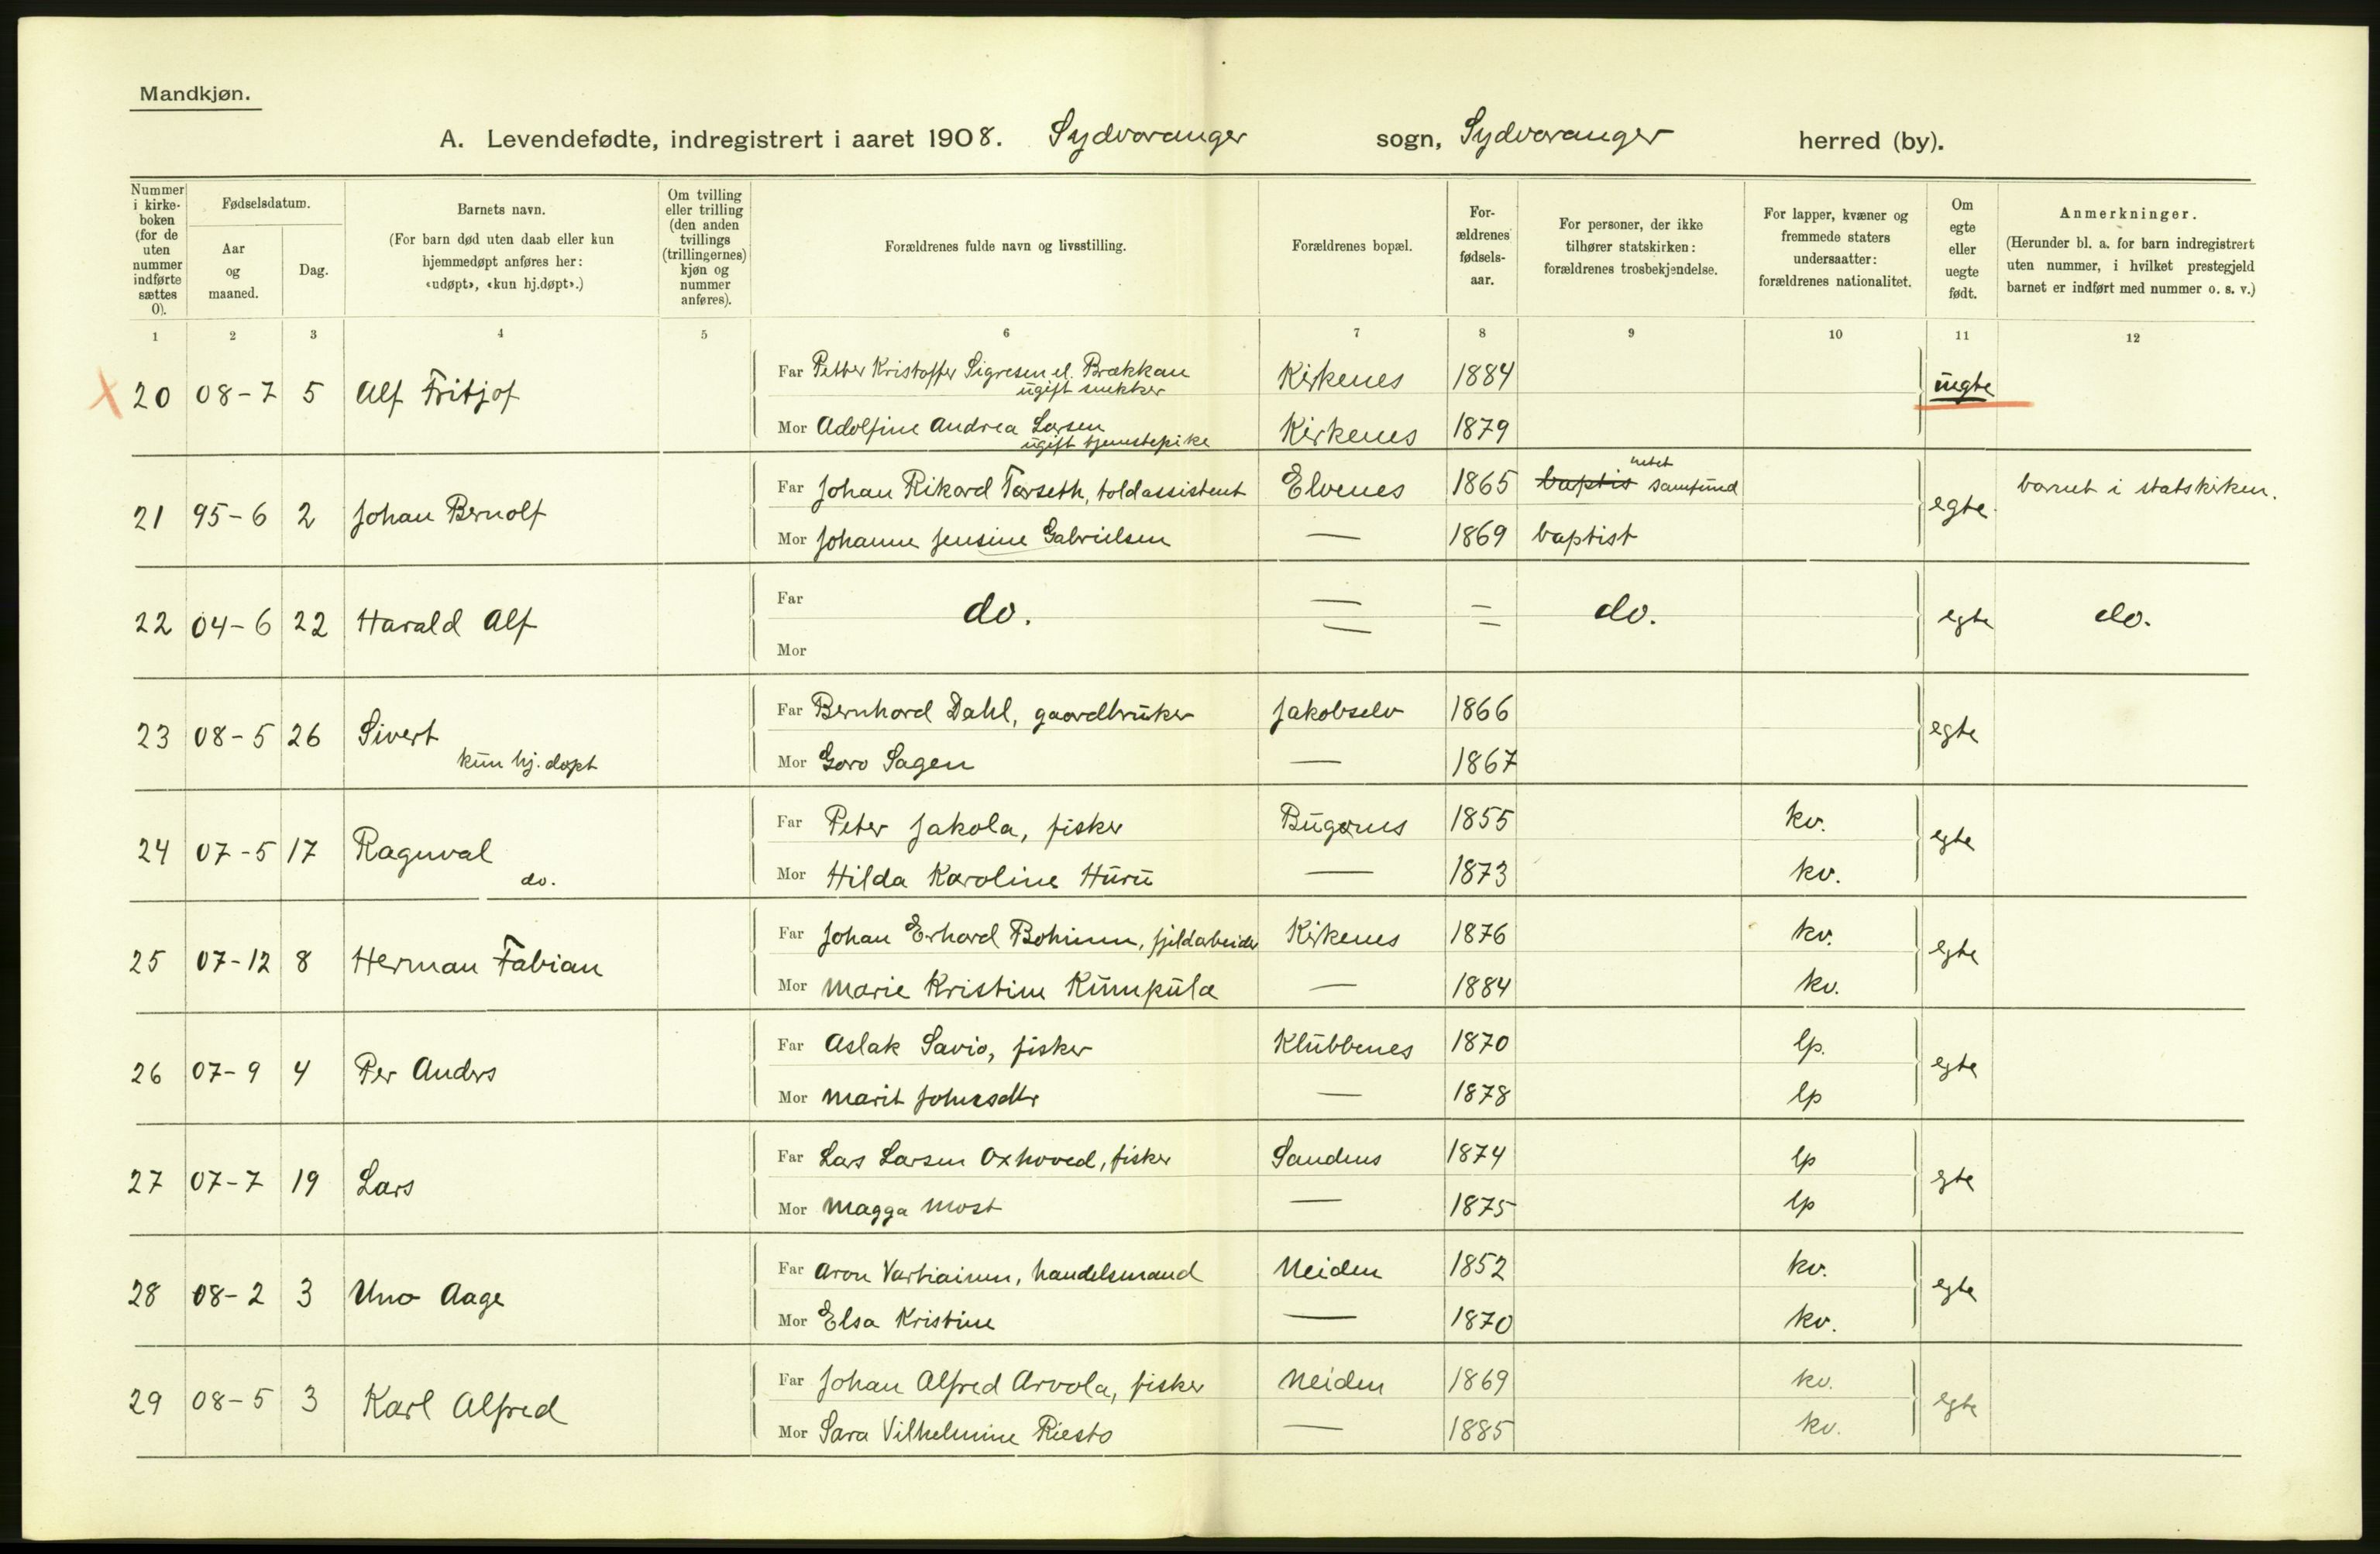 Mandkjøn.
A. Levendefødte, indregistrert i aaret 1908. Sydvaranger sogn, Sydvaranger herred (by).
Nummer i kirke-boken (for de uten nummer indførte sættes 0).
Fødselsdatum.
Aar og maaned.
Dag.
Barnets navn.
(For barn død uten daab eller kun hjemmedøpt anføres her: «udøpt», «kun hj.døpt».)
Om tvilling eller trilling (den anden tvillings (trillingernes) kjøn og nummer anføres).
Forældrenes fulde navn og livsstilling.
Forældrenes bopæl.
For-ældrenes fødsels-aar.
For personer, der ikke tilhører statskirken: forældrenes trosbekjendelse.
For lapper, kvæner og fremmede staters undersaatter: forældrenes nationalitet.
Om egte eller uegte født.
Anmerkninger.
(Herunder bl. a. for barn indregistrert uten nummer, i hvilket prestegjeld barnet er indført med nummer o. s. v.)
1 2 3 4 5 6 7 8 9 10 11 12
X 20 08-7 5 Alf Fritjof
Far Petter Kristoffer Sigresen el. Brækkan Kirkenes 1884 uegte
ugift snekker
Mor Adolfine Andrea Larsen Kirkenes 1879
ugift tjenestepike
21 95-6 2 Johan Bernolf
Far Johan Rikard Tørseth, toldassistent Elvenes 1865 baptist samfund egte barnet i statskirken.
Mor Johanne Jensine Gabrielsen — 1869 baptist
22 04-6 22 Harald Alf
Far do. = = do. egte do.
Mor
23 08-5 26 Sivert
kun hj. døpt
Far Bernhard Dahl, gaardbruker Jakobselv 1866 egte
Mor Goro Sagen — 1867
24 07-5 17 Ragnval
do.
Far Peter Jakola, fisker Bugønes 1855 kv. egte
Mor Hilda Karoline Huru — 1873 kv.
25 07-12 8 Herman Fabian
Far Johan Erhard Bohinen, fjeldarbeider Kirkenes 1876 kv. egte
Mor Marie Kristine Kumpula — 1884 kv.
26 07-9 4 Per Anders
Far Aslak Savio, fisker Klubbenes 1870 lp. egte
Mor Marit Johnsdtr — 1878 lp
27 07-7 19 Lars
Far Lars Larsen Oxhoved, fisker Sandnes 1874 lp egte
Mor Magga Most — 1875 lp
28 08-2 3 Uno Aage
Far Aron Vartiainen, handelsmand Neiden 1852 kv. egte
Mor Elsa Kristine — 1870 kv.
29 08-5 3 Karl Alfred
Far Johan Alfred Arvola, fisker Neiden 1869 kv. egte
Mor Sara Vilhelmine Riesto — 1885 kv.